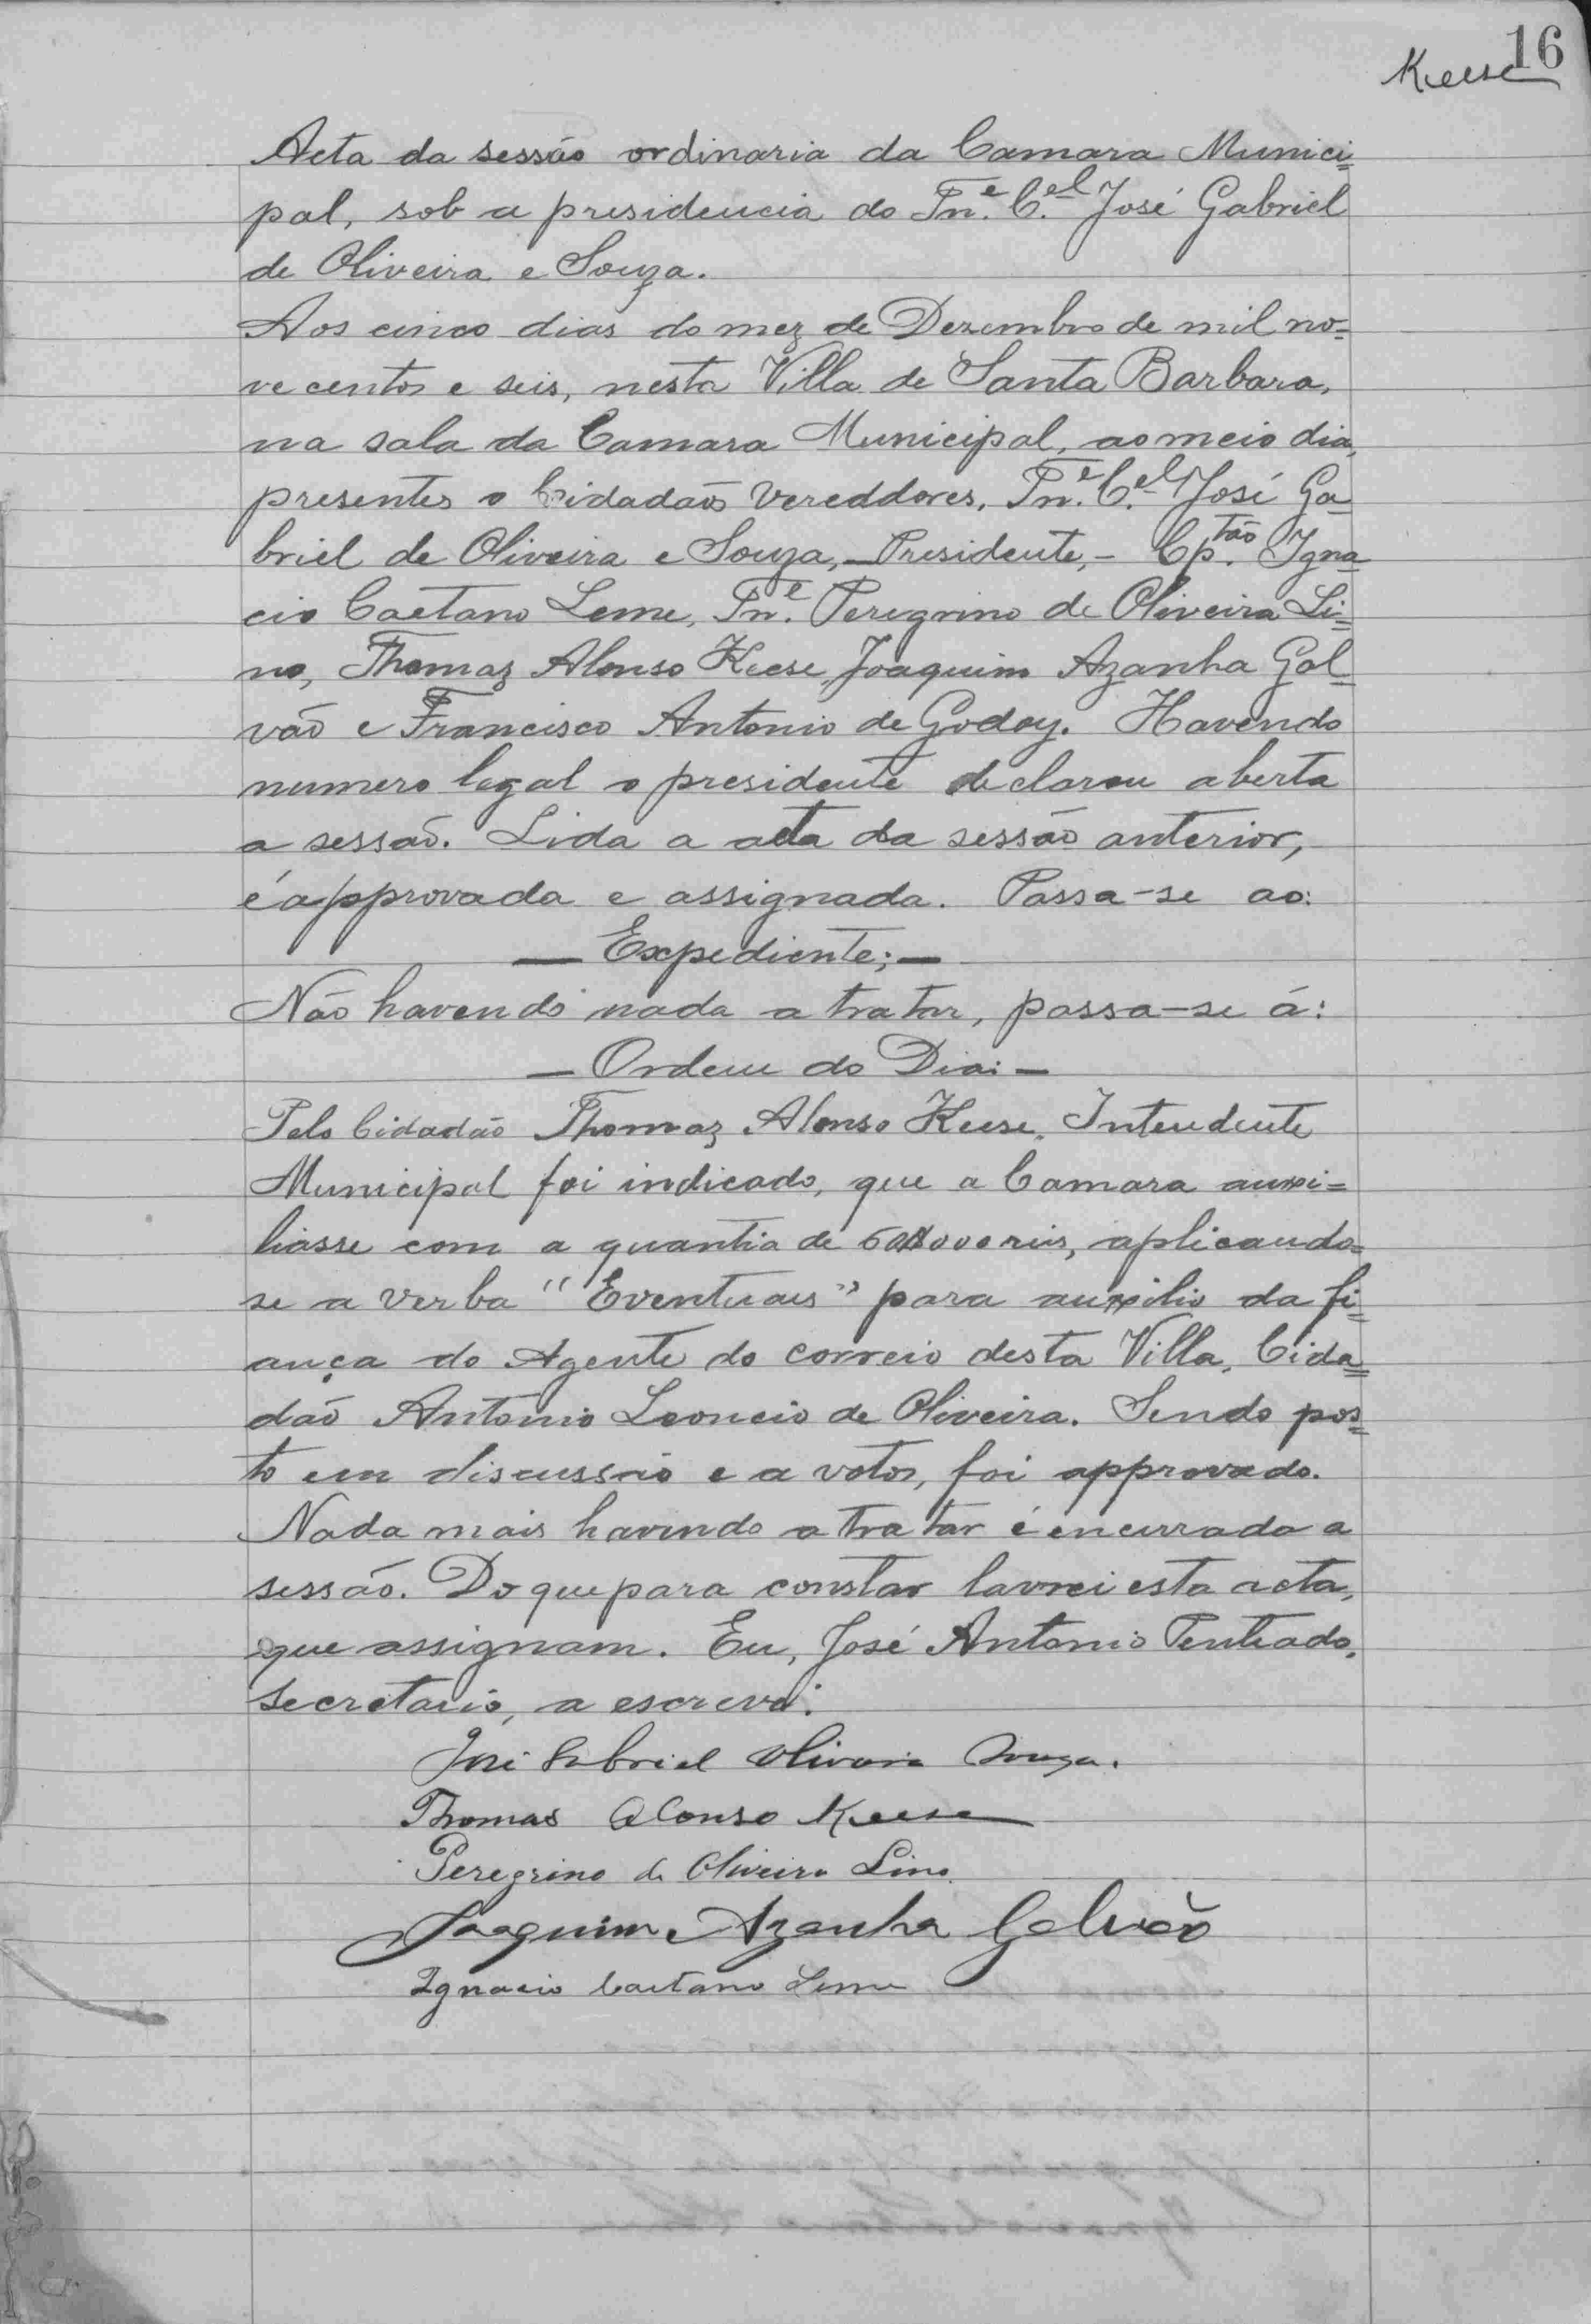 16
Keese
Acta da sessão ordinaria da Camara Munici=
pal, sob a presidencia do Tn.e C.el José Gabriel
de Oliveira e Souza.
Aos cinco dias do mez de Dezembro de mil no=
ve centos e seis, nesta Villa de Santa Barbara,
na sala da Camara Municipal, ao meio dia,
presentes o Cidadãos Vereddores, Tn.e C.el José Ga=
briel de Oliveira e Souza, – Presidente, – Cp.tão Igna=
cio Caetano Leme, Tn.e Peregrino de Oliveira Li=
no, Thomaz Alonso Keese, Joaquim Azanha Gal=
vão e Francisco Antonio de Godoy. Havendo
numero legal o presidente declarou aberta
a sessão. Lida a acta da sessão anterior,
é approvada e assignada. Passa-se ao:
— Expediente; —
Não havendo nada a tratar, passa-se á:
— Ordem do Dia: —
Pelo Cidadão Thomaz Alonso Keese, Intendente
Municipal foi indicado, que a Camara auxi=
liasse com a quantia de reis, aplicando=
se a verba "Eventuaes" para auxilio da fi=
ança do Agente do correio desta Villa, Cida=
dão Antonio Leoncio de Oliveira. Sendo pos=
to em discussão e a votos, foi approvado.
Nada mais havendo a tratar é encerrada a
sessão. Do que para constar lavrei esta acta,
que assignam. Eu, José Antonio Penteado,
secretario, a escrevi.
José Gabriel Oliveira Souza.
Thomas Alonso Keese
Peregrino de Oliveira Lino
Joaquim Azanha Galvão
Ignacio Caetano Leme